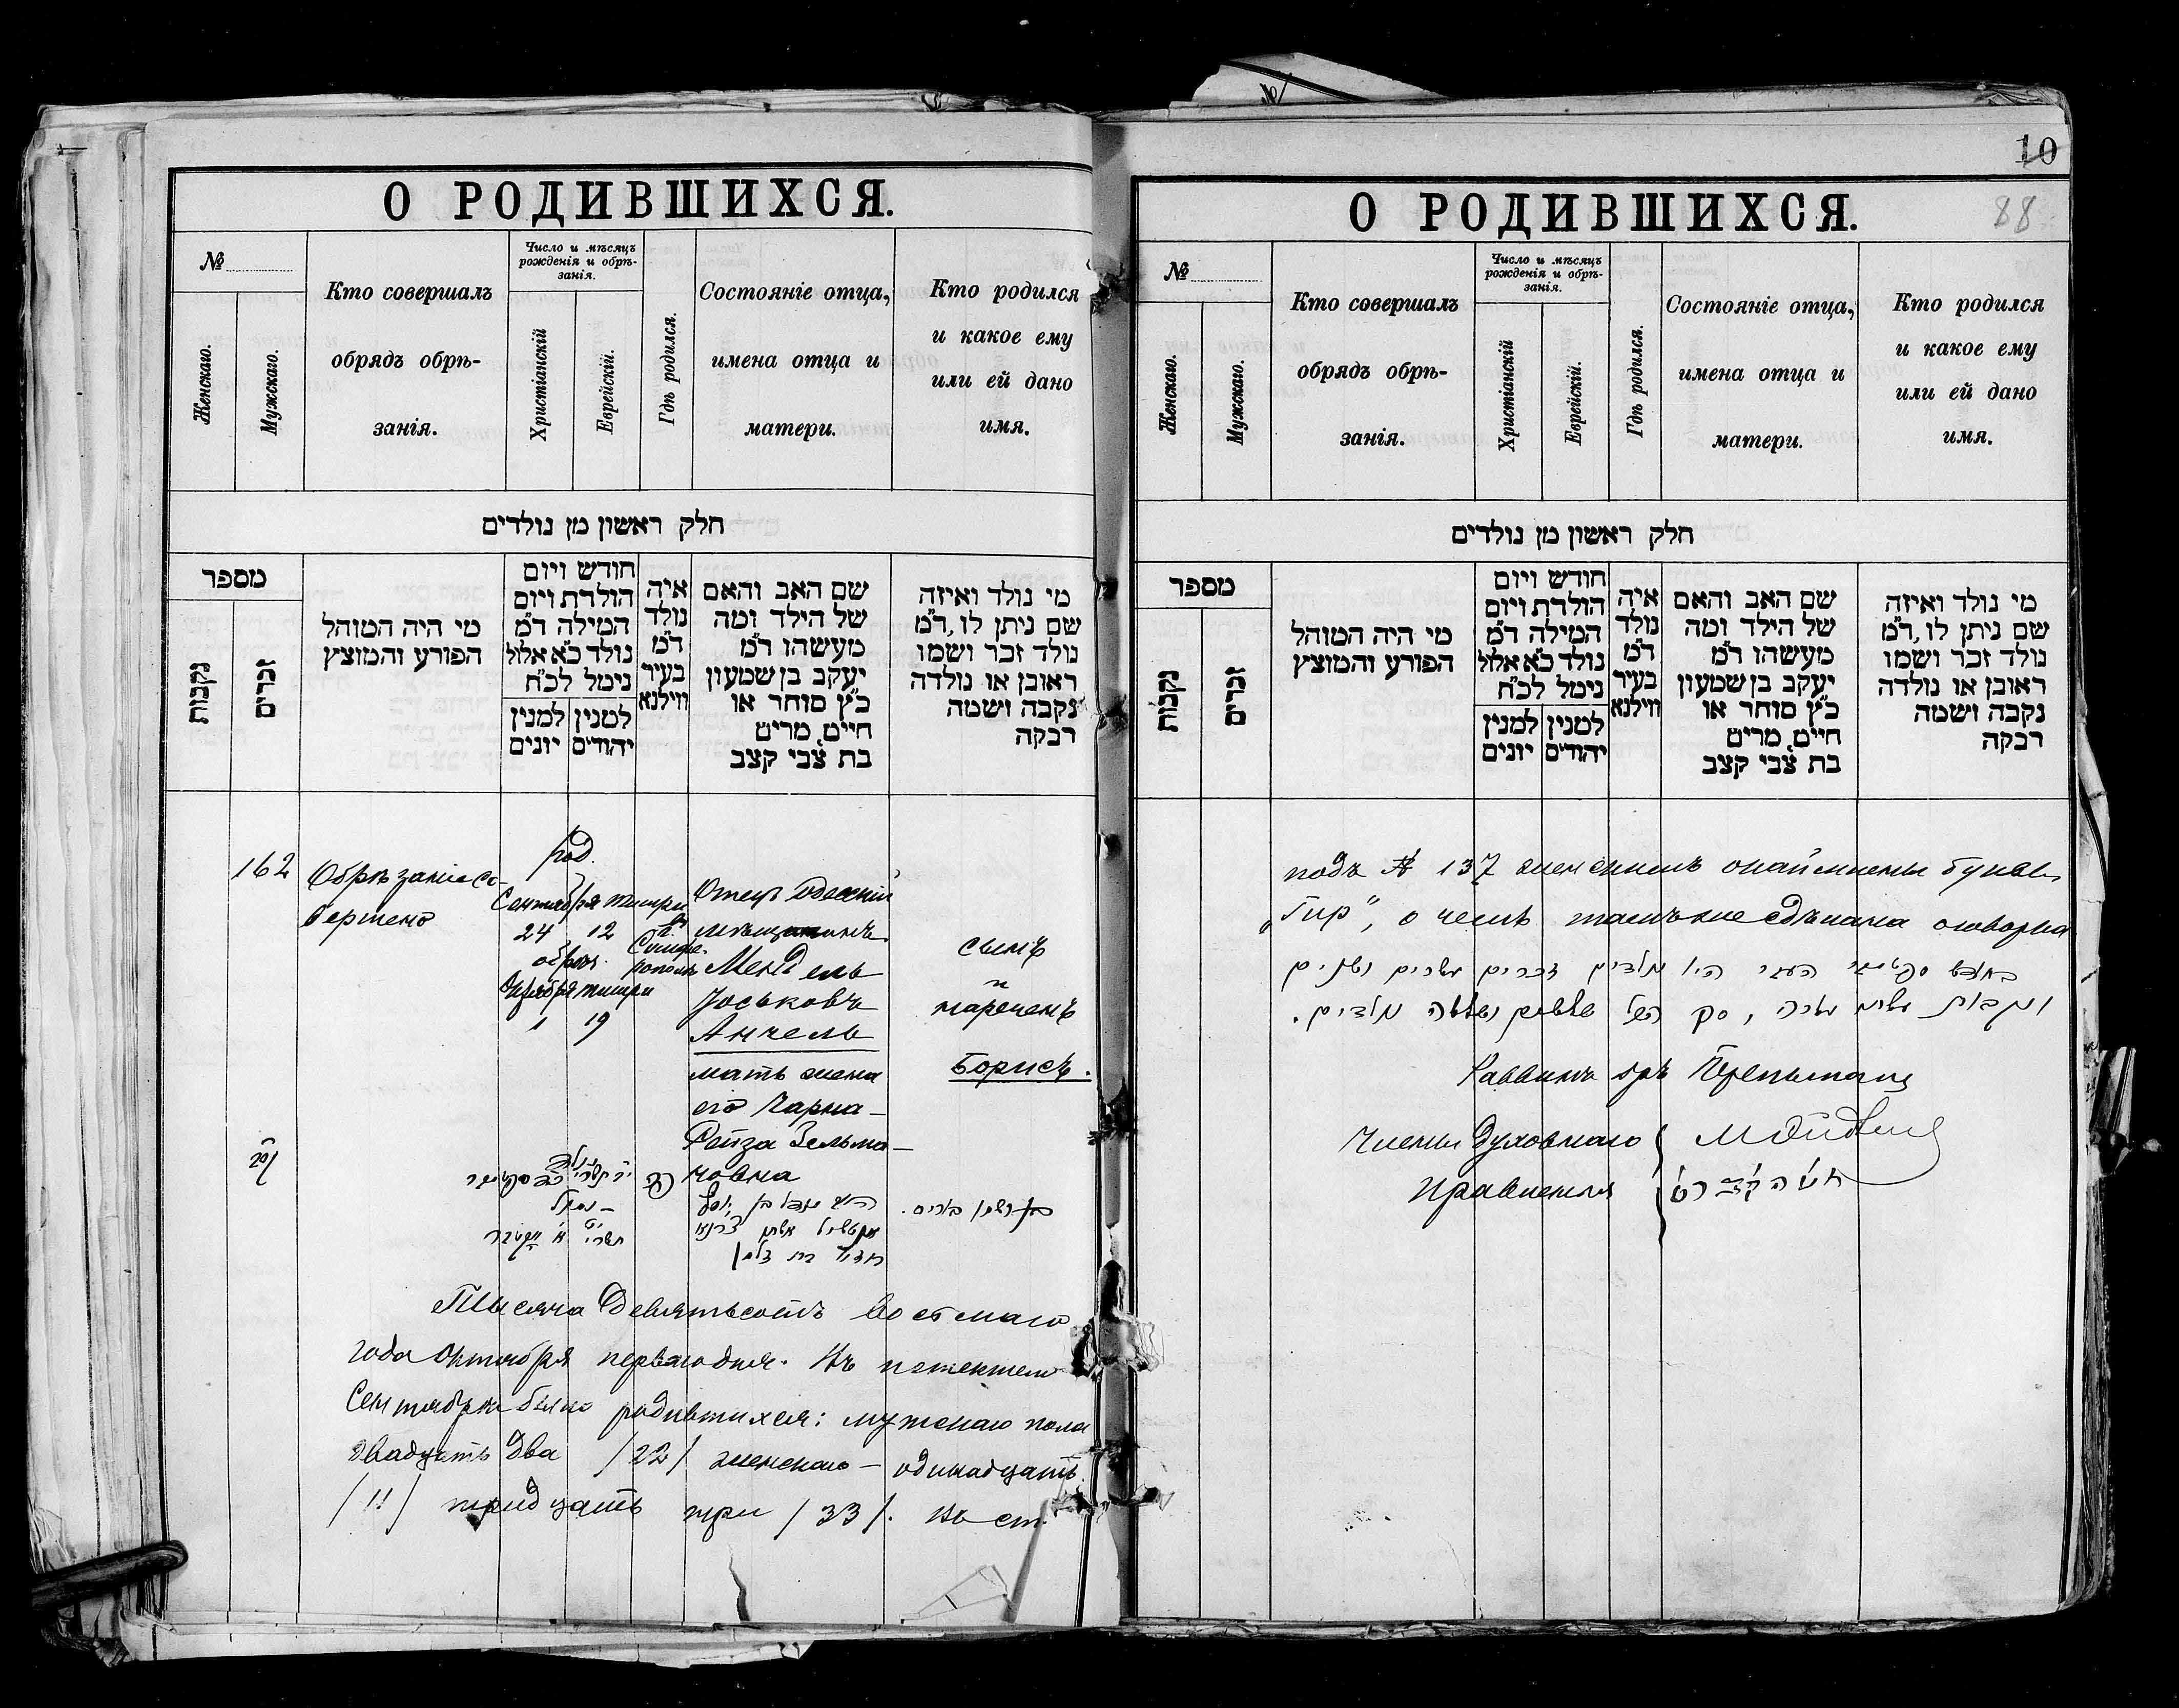 О РОДИВШИХСЯ.
№
Женскаго.
Мужскаго.
Кто совершалъ
обрядъ обрѣ-
занія.
Число и мѣсяцъ
рожденія и обрѣ-
занія.
Христіанскій
Еврейскій.
Гдѣ родился.
Состояніе отца,
имена отца и
матери.
Кто родился
и какое ему
или ей дано
имя.
חלק ראשון מן נולדים
מספר
נקבות
זכרים
מי היה המוהל
הפורע והמוצץ
חודש ויום
הולדת ויום
המילה ד״מ
נולד כ״א אלול
נימל לכ״ח
למנין יונים
למנין יהודים
איה
נולד
ד״מ
בעיר
ווילנא
שם האב והאם
של הילד ומה
מעשהו ד״מ
יעקב בן שמעון
כ״ץ סוחר או
חיים, מרים
בת צבי קצב
מי נולד ואיזה
שם ניתן לו, ד״מ
נולד זכר ושמו
ראובן או נולדה
נקבה ושמה
רבקה
162
Обрѣзаніе со-
вершено
род.
Сентября Тишри
24 12
обрѣз.
Октября тишри
1 19
в.
Симфе-
рополѣ
Отецъ Одесскій
мѣщанинъ
Мендель
Іоськовъ
Анчель
мать жена
его Чарна-
Рейза Зельма-
новна
сынъ
и
нареченъ
Борисъ.
Тысяча Девятьсотъ Восьмаго
года Октября перваго дня. Въ истекшем
Сентябрѣ было родившихся: мужскаго пола
двадцать два /22/ женскаго – одинадцать
/11/ тридцать три /33/. Въ ст.
10
88
О РОДИВШИХСЯ.
№
Женскаго.
Мужскаго.
Кто совершалъ
обрядъ обрѣ-
занія.
Число и мѣсяцъ
рожденія и обрѣ-
занія.
Христіанскій
Еврейскій.
Гдѣ родился.
Состояніе отца,
имена отца и
матери.
Кто родился
и какое ему
или ей дано
имя.
חלק ראשון מן נולדים
מספר
נקבות
זכרים
מי היה המוהל
הפורע והמוצץ
חודש ויום
הולדת ויום
המילה ד״מ
נולד כ״א אלול
נימל לכ״ח
למנין יונים
למנין יהודים
איה
נולד
ד״מ
בעיר
ווילנא
שם האב והאם
של הילד ומה
מעשהו ד״מ
יעקב בן שמעון
כ״ץ סוחר או
חיים, מרים
בת צבי קצב
מי נולד ואיזה
שם ניתן לו, ד״מ
נולד זכר ושמו
ראובן או נולדה
נקבה ושמה
רבקה
подъ № 137 женскимъ буквы
„Гир“, о чемъ сдѣлана оговорка
בחודש העבר היו נולדים זכרים עשרים ושנים
ונקבות עשרה, סך הכל שלשים ושלשה נולדים.
Раввинъ
Члены Духовнаго
Правленія